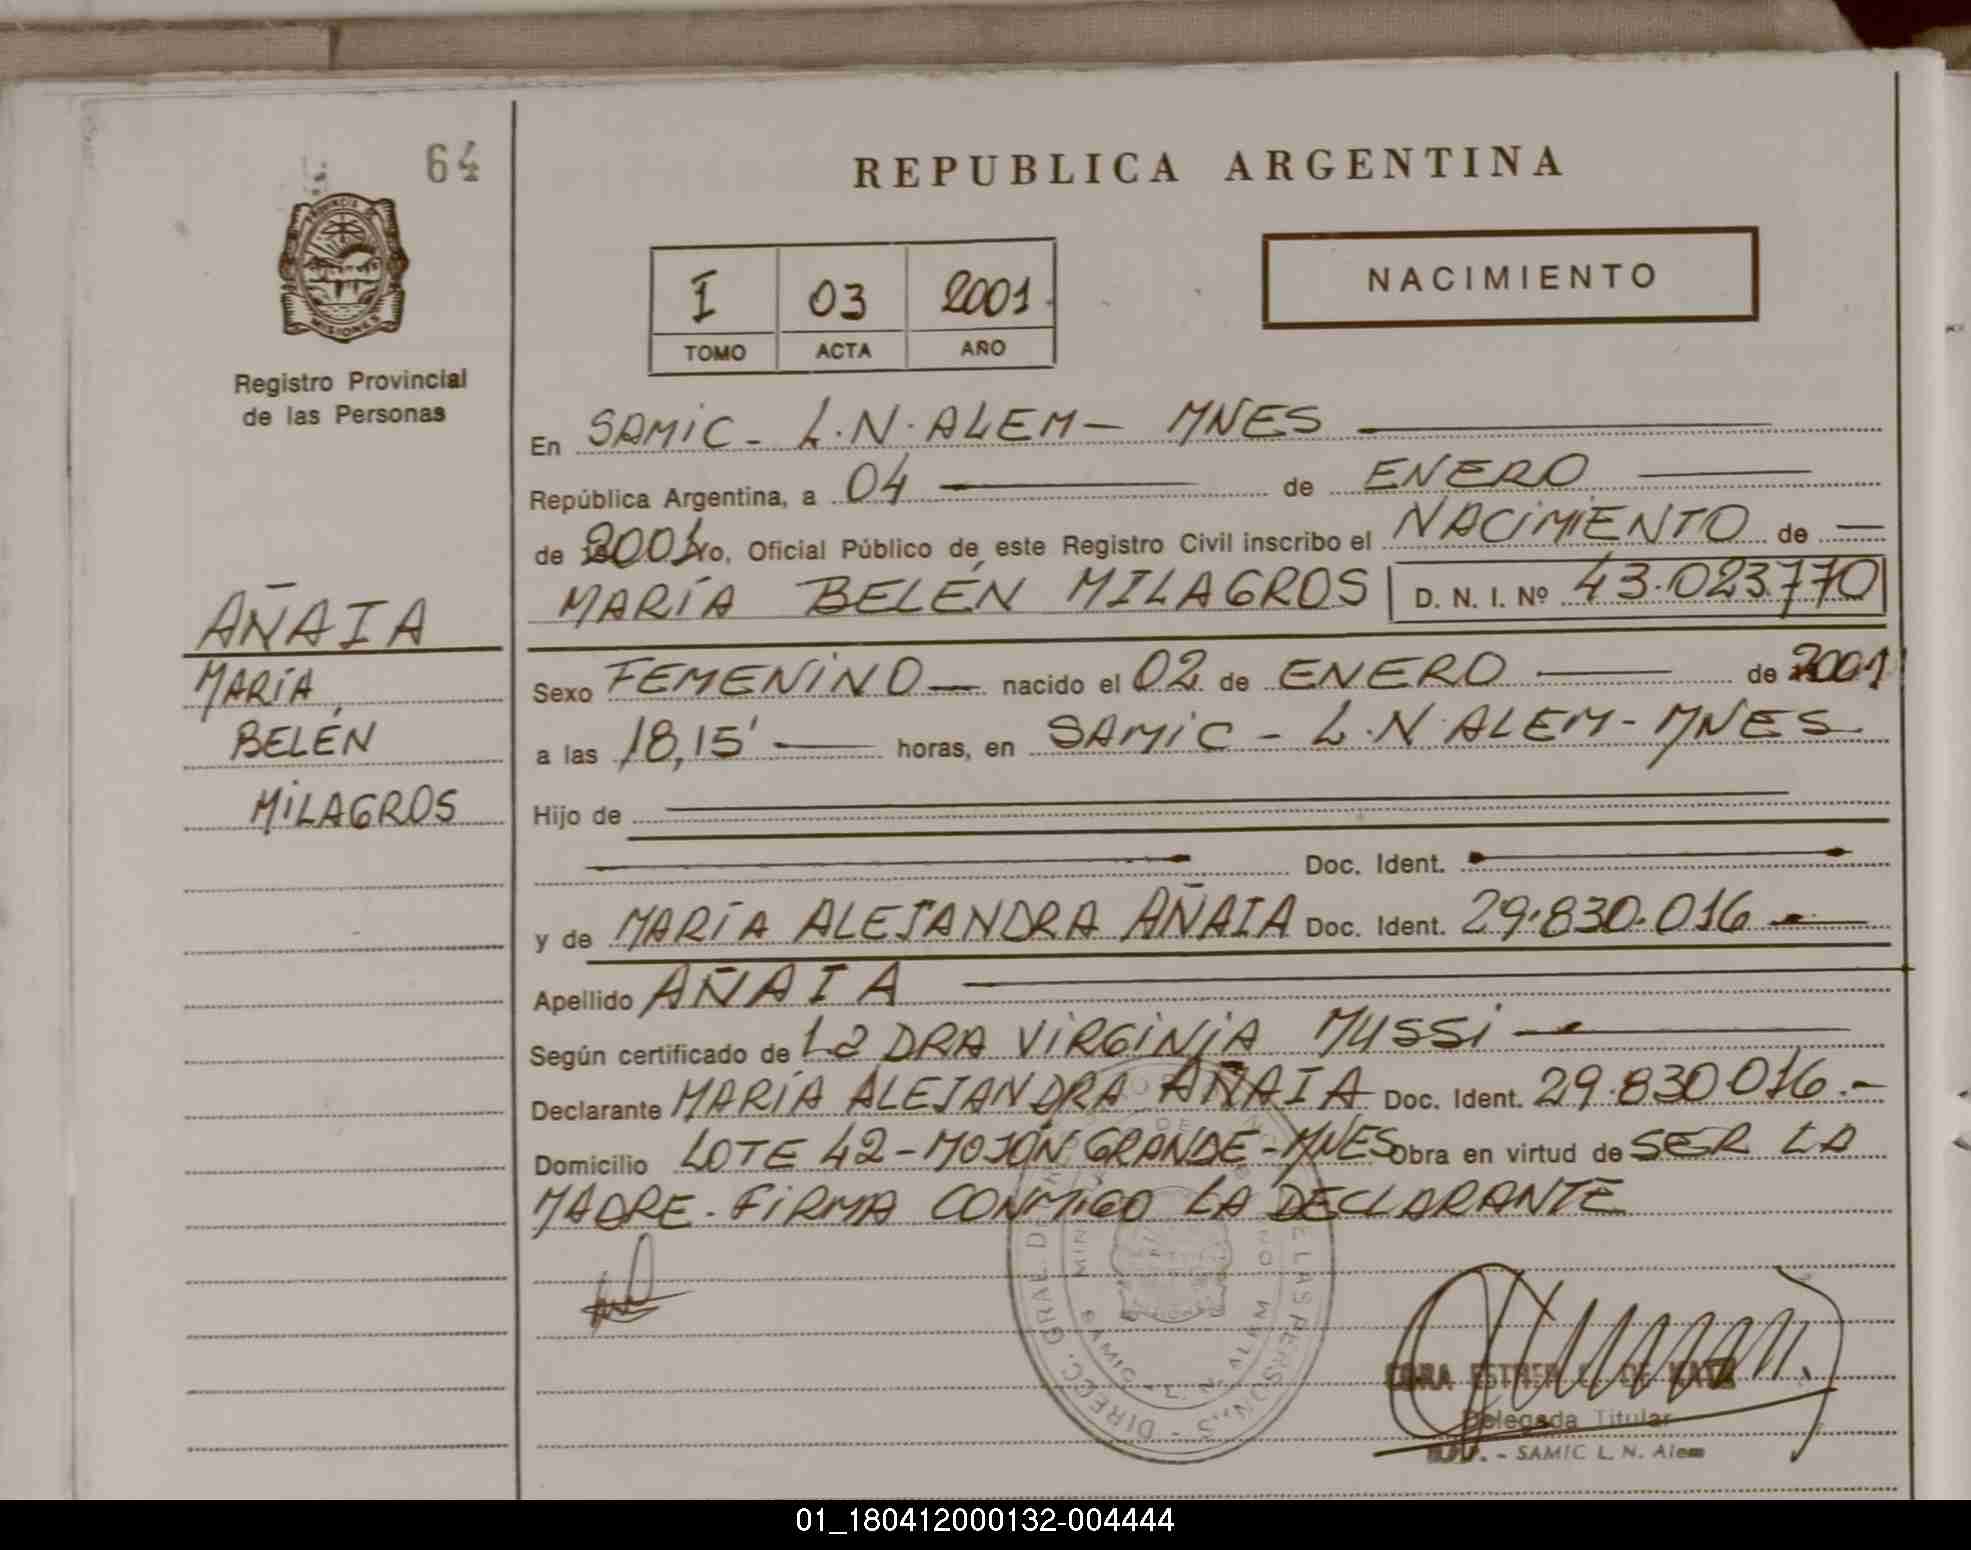 64
REPUBLICA ARGENTINA
PROVINCIA DE
MISIONES
Registro Provincial
de las Personas
I 03 2001
TOMO ACTA AÑO
NACIMIENTO
En SAMIC - L.N. ALEM - MNES
República Argentina, a 04 de ENERO
de 2001 Yo, Oficial Público de este Registro Civil inscribo el NACIMIENTO de
MARÍA BELÉN MILAGROS D. N. I. Nº 43.023.770
AÑAIA
MARÍA
BELÉN
MILAGROS
Sexo FEMENINO nacido el 02 de ENERO de 2001
a las 18,15' horas, en SAMIC - L.N. ALEM - MNES
Hijo de
Doc. Ident.
y de MARÍA ALEJANDRA AÑAIA Doc. Ident. 29.830.016
Apellido AÑAIA
Según certificado de La DRA VIRGINIA MUSSI
Declarante MARÍA ALEJANDRA AÑAIA Doc. Ident. 29.830.016.-
Domicilio LOTE 42 - MOJÓN GRANDE - MNES Obra en virtud de SER LA
MADRE. FIRMA CONMIGO LA DECLARANTE
DIRECC. GRAL. DE
ESTHER L. DE
Delegada Titular
- SAMIC L. N. Alem
01_180412000132-004444